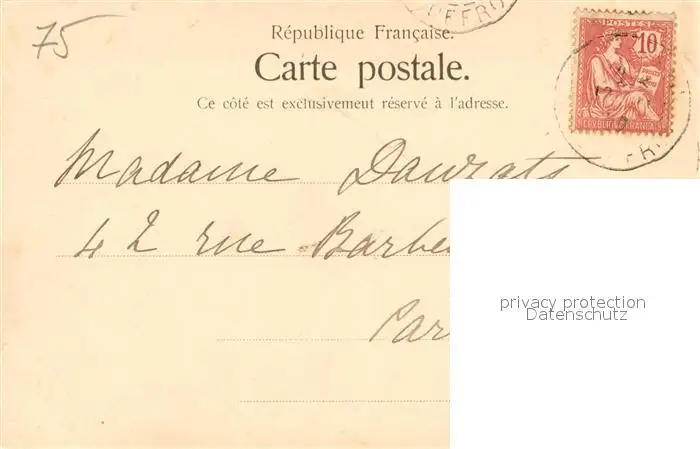 75
République Française.
Carte postale.
Ce côté est exclusivement réservé à l'adresse.
POSTES
10
RÉPUBLIQUE FRANÇAISE
Madame
42 rue Barbe
Par
privacy protection
Datenschutz